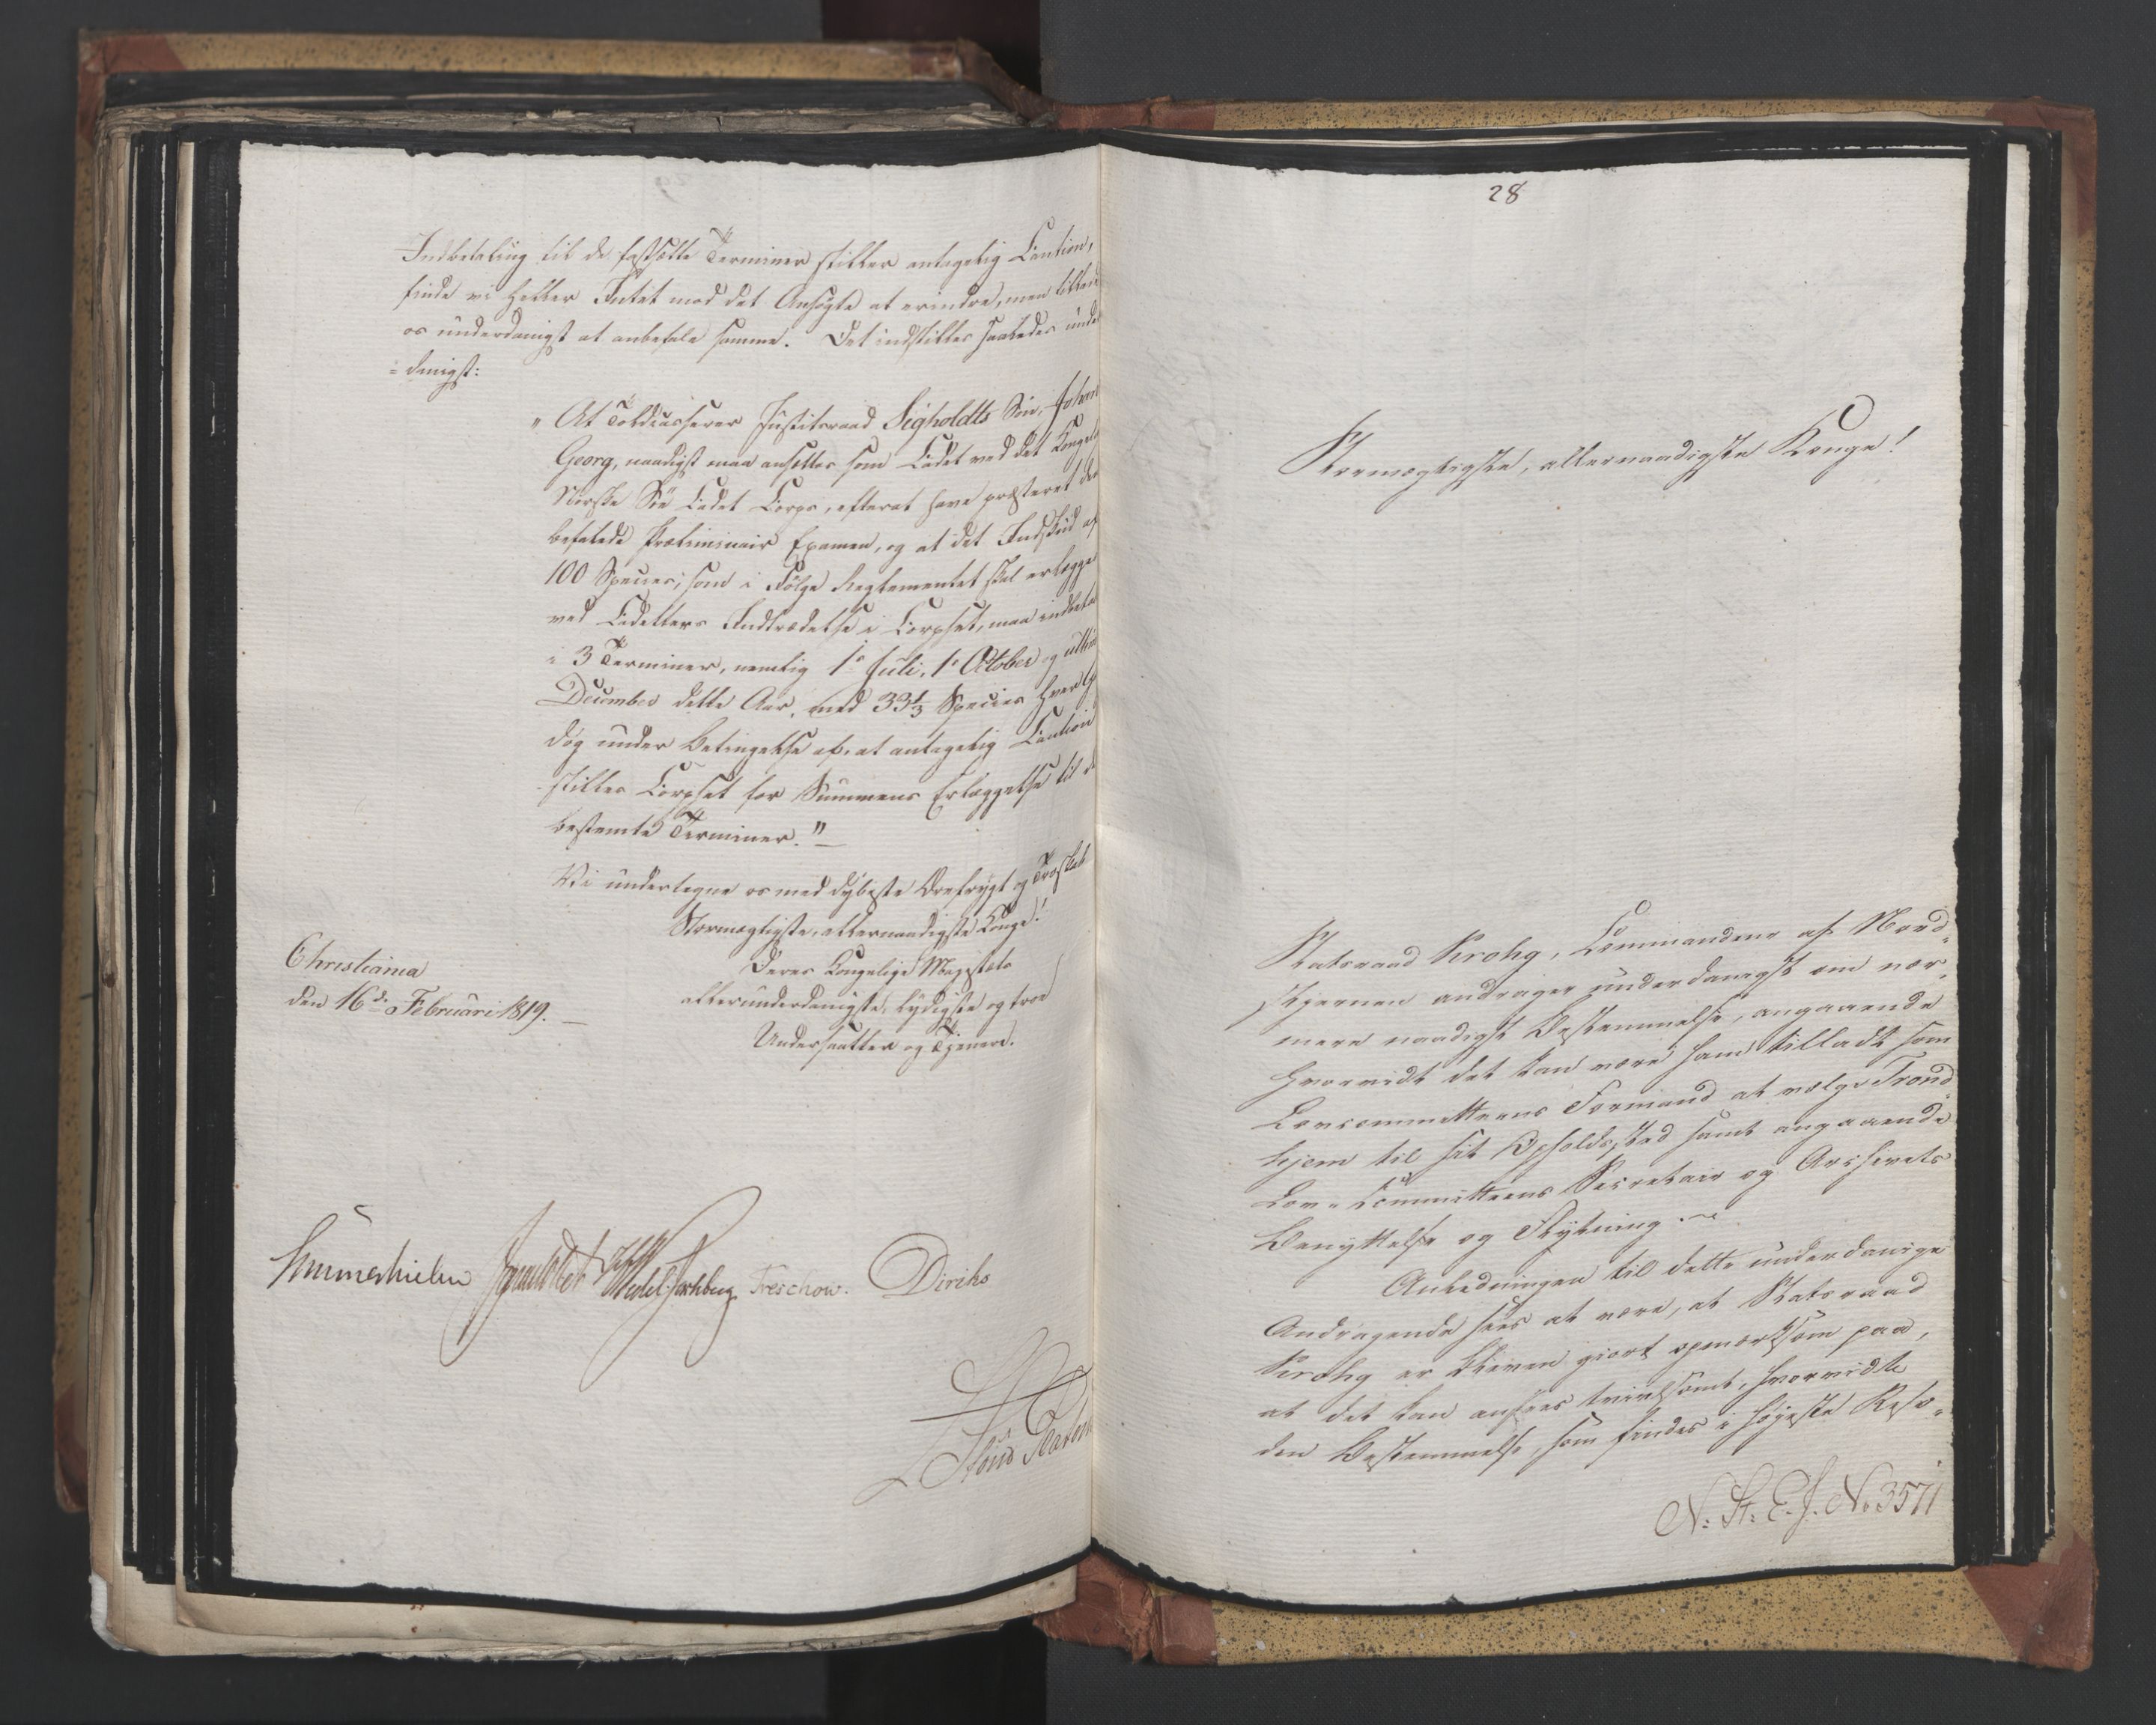 Indbetaling til de fastsatte Terminer stilles antagelig Caution,
finde vi heller Intet mod det Ansøgte at erindre, men tillade
os underdanigst at anbefale samme. Det indstilles saaledes under
=danigst:
„At Toldcasserer Justitsraad Sigholdts Søn, Johan
Georg, naadigst maa ansættes som Cadet ved det Kongelige
Norske Søe Cadet Corps, efterat have præsteret den
befalede Præliminair Examen, og at det Indskud af
100 Species, som i Følge Reglementet skal erlægges
ved Cadetters Indtrædelse i Corpset, maa indbetales
i 3 Terminer, nemlig 1e Juli, 1e October og ultimo
December dette Aar, med 33⅓ Species hver Gang
dog under Betingelse af, at antagelig Caution
stilles Corpset for Summens Erlæggelse til de
bestemte Terminer."
Vi undertegne os med dybeste Ærefrygt og Troskab
Stormægtigste, allernaadigste Konge!
Deres Kongelige Majestæts
allerunderdanigste, lydigste og troe
Undersaatter og Tjenere.
Christiania
den 16de Februari 1819.
Sommerhielm Wedel Jarlsberg Treschow. Diriks
28
Stormægtigste, allernaadigste Konge!
Statsraad Krohg, Commandeur af Nord-
stjernen andrager underdanigst om nær-
mere naadigst Bestemmelse, angaaende
hvorvidt det kan være ham tilladt som
Lovcommitteens Formand at vælge Trond-
hjem til sit Opholdssted samt angaaende
Lov-Committeens Secretair og Archivets
Benyttelse og Flytning.
Anledningen til dette underdanige
Andragende sees at være, at Statsraad
Krohg er bleven giort opmærksom paa,
at det kan ansees tvivlsomt, hvorvidt
den Bestemmelse, som findes i høyeste Reso-
N: St: E. J. No 3571